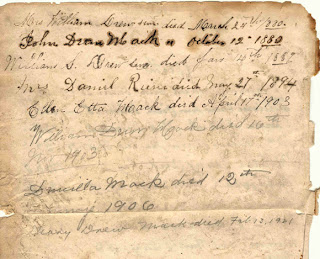 Mrs William Drewson died March 24th 1880.
John Drew Mack " October 12th 1880
William S. Drew died Jan 4th 1887
Mrs Daniel died May 27th 1894
Etta Mack died April 1st 1903
William Drew Mack died 16th
1913
Druzilla Mack died 12th
1906
Drew Mack died Feb 12, 1921